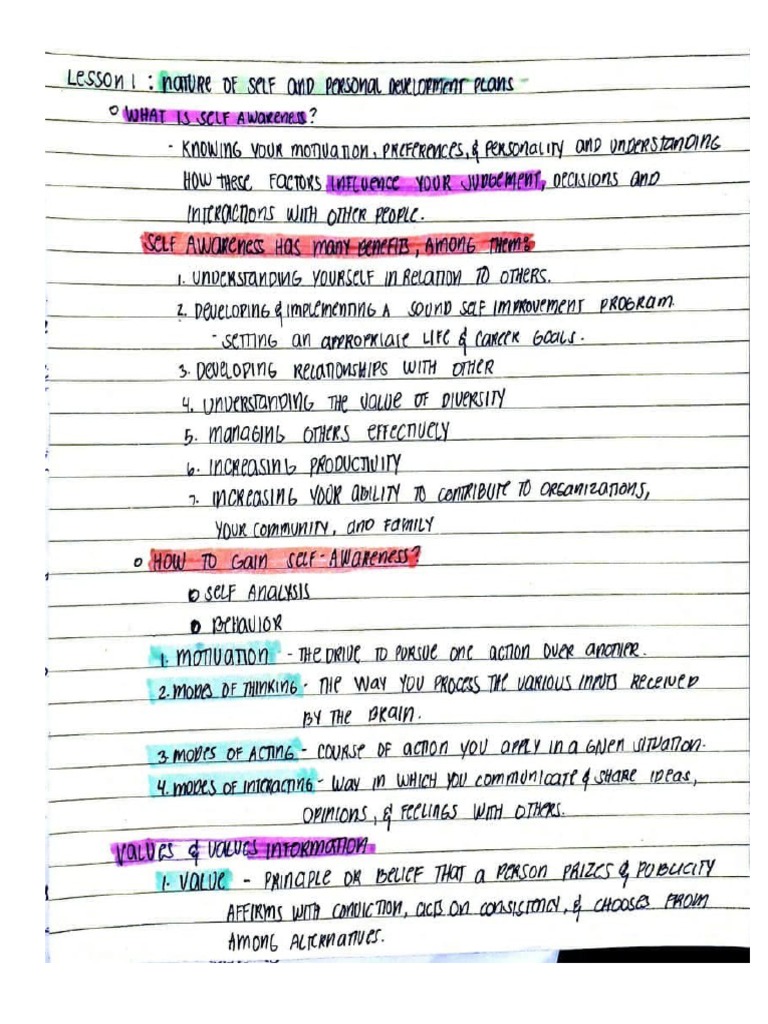 Lesson 1 : Nature of Self and Personal Development Plans -
o What is Self Awareness?
- Knowing your motivation, preferences, & personality and understanding
how these factors influence your judgement, decisions and
interactions with other people.
Self Awareness has many benefits, among them:
1. Understanding yourself in relation to others.
2. Developing & implementing a sound self improvement program.
- Setting an appropriate life & career goals.
3. Developing relationships with other
4. Understanding the value of diversity
5. Managing others effectively
6. Increasing productivity
7. Increasing your ability to contribute to organizations,
your community, and family
o How to gain self-awareness?
o Self Analysis
o Behavior
1. Motivation - the drive to pursue one action over another.
2. Modes of thinking - the way you process the various inputs received
by the brain.
3. Modes of acting - course of action you apply in a given situation.
4. Modes of interacting - way in which you communicate & share ideas,
opinions, & feelings with others.
Values & Values Information
1. Value - principle or belief that a person prizes & publicity
affirms with conviction, acts on consistency, & chooses from
among alternatives.